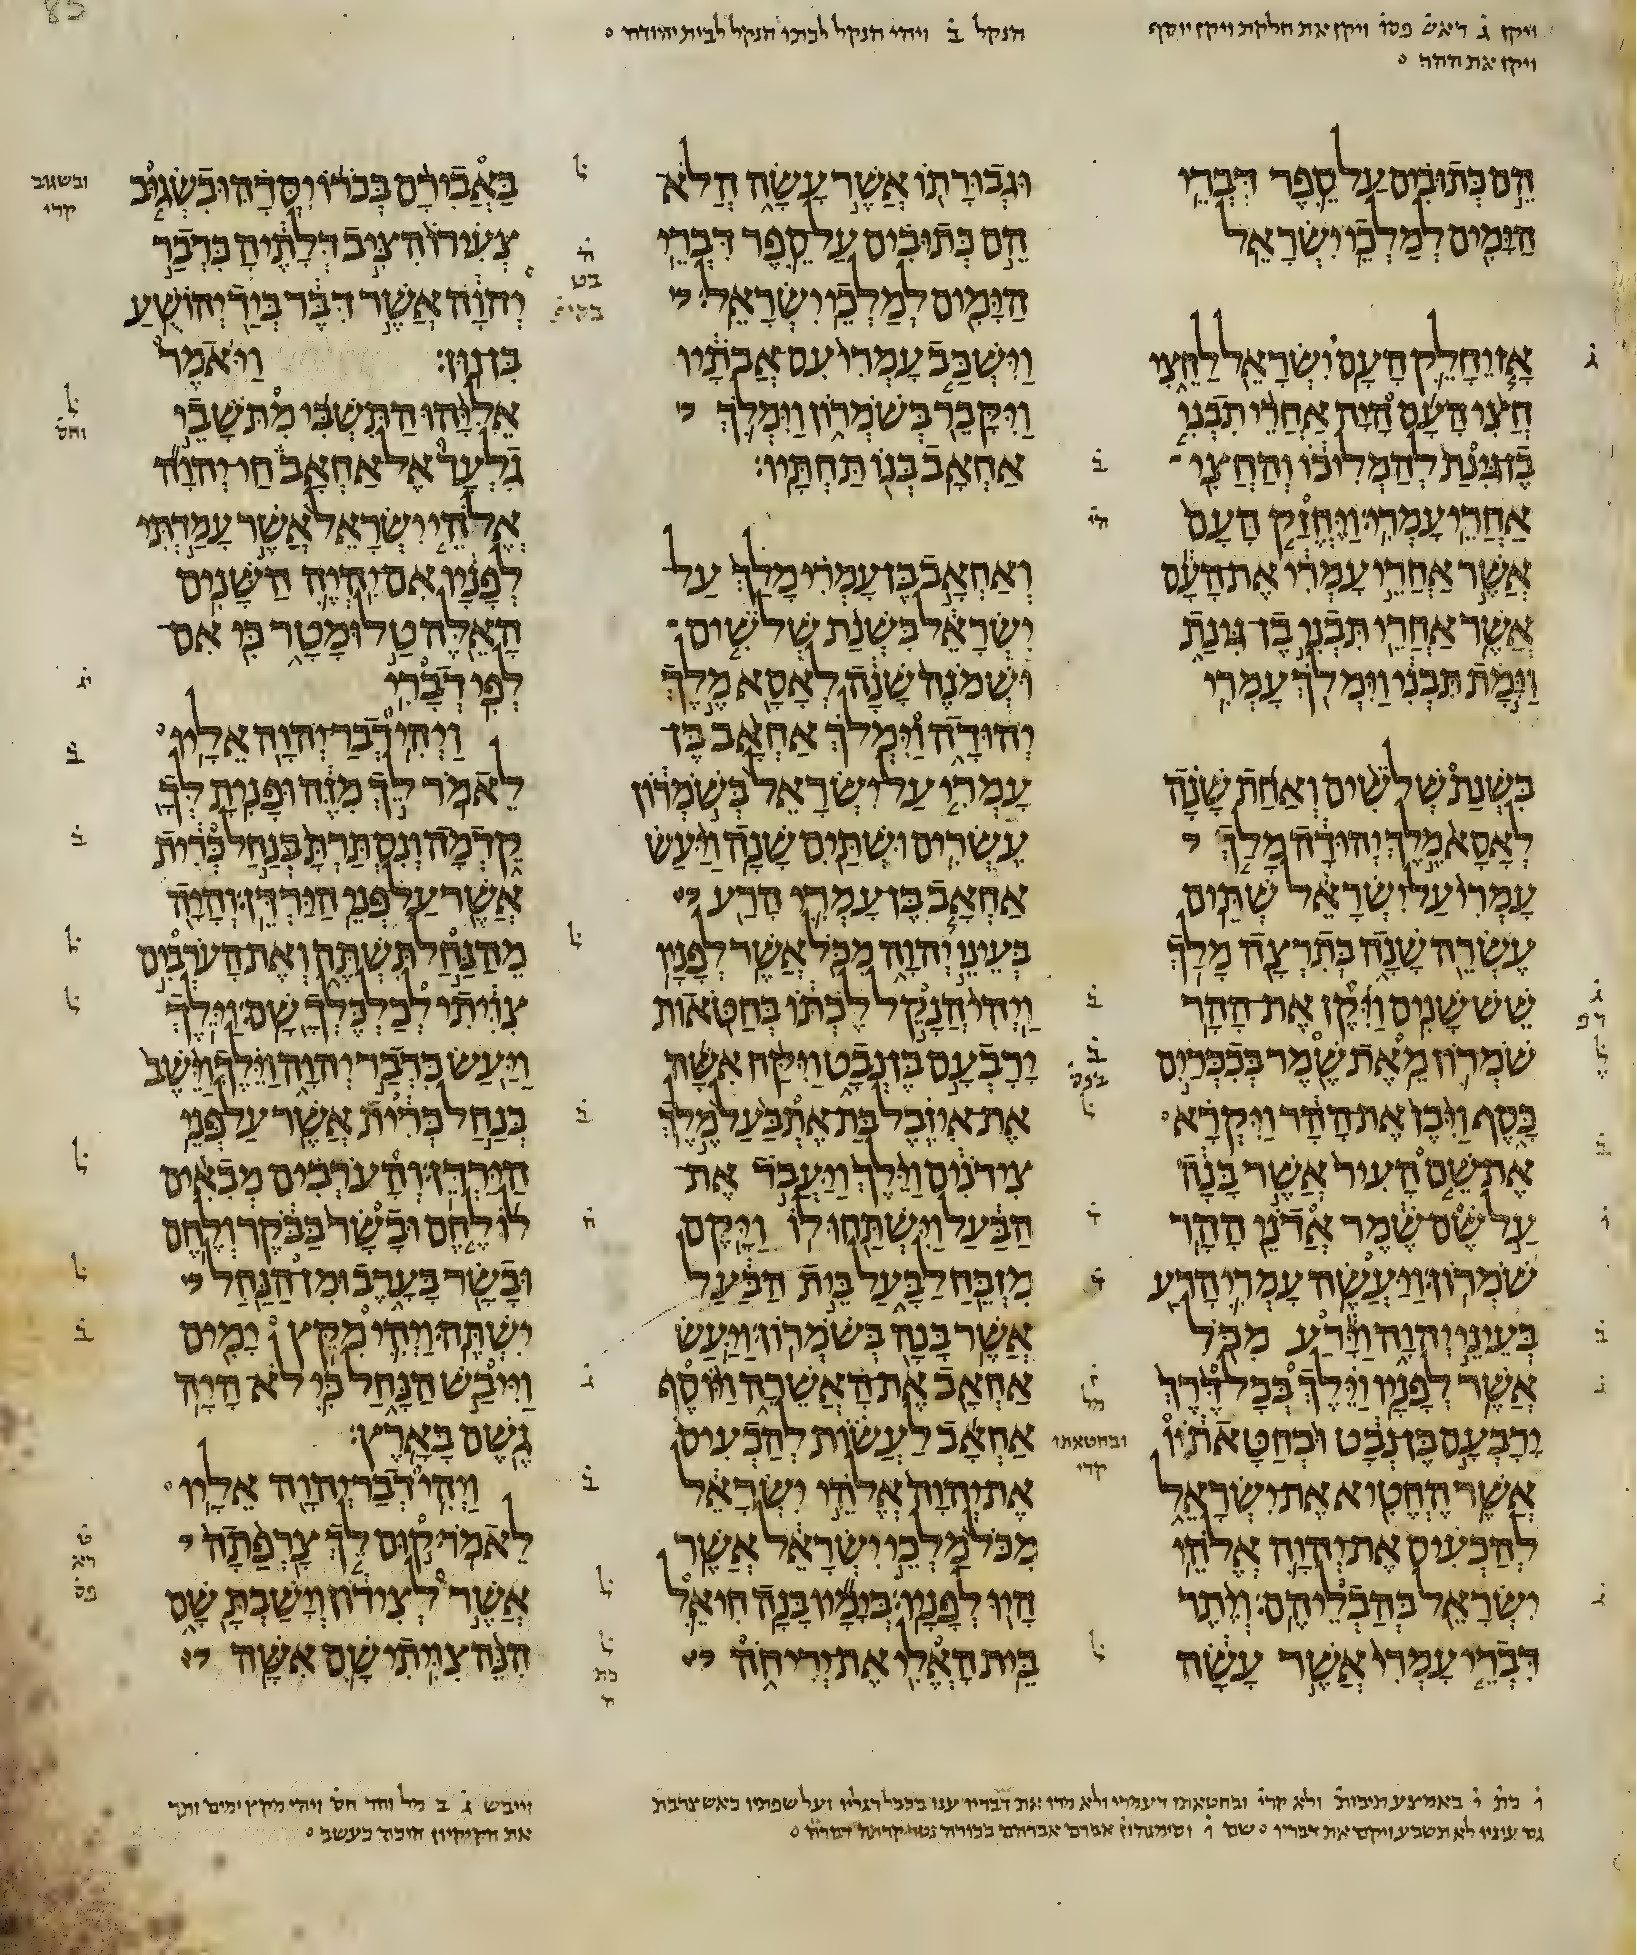 ויקן ג̇ ראש̇ פסו̇ ויקן את חלקת ויקן יוסף
ויקן את ההר
הנקל ב̇ ויהי הנקל לכתו הנקל לבית יהודה
הם כתובים על ספר דברי
הימים למלכי ישראל
אז יחלק העם ישראל לחצי
חצי העם היה אחרי תבני
בן גינת להמליכו והחצי
אחרי עמרי׃ ויחזק העם
אשר אחרי עמרי את העם
אשר אחרי תבני בן גינת
וימת תבני וימלך עמרי
בשנת שלשים ואחת שנה
לאסא מלך יהודה מלך
עמרי על ישראל שתים
עשרה שנה בתרצה מלך
שש שנים׃ ויקן את ההר
שמרון מאת שמר בככרים
כסף ויבן את ההר ויקרא
את שם העיר אשר בנה
על שם שמר אדני ההר
שמרון׃ ויעשה עמרי הרע
בעיני יהוה וירע מכל
אשר לפניו׃ וילך בכל דרך
ירבעם בן נבט ובחטאתיו
אשר החטיא את ישראל
להכעיס את יהוה אלהי
ישראל בהבליהם׃ ויתר
דברי עמרי אשר עשה
ובחטאתו
קרי
וגבורתו אשר עשה הלא
הם כתובים על ספר דברי
הימים למלכי ישראל׃
וישכב עמרי עם אבתיו
ויקבר בשמרון וימלך
אחאב בנו תחתיו׃
ואחאב בן עמרי מלך על
ישראל בשנת שלשים
ושמנה שנה לאסא מלך
יהודה וימלך אחאב בן
עמרי על ישראל בשמרון
עשרים ושתים שנה׃ ויעש
אחאב בן עמרי הרע
בעיני יהוה מכל אשר לפניו
ויהי הנקל לכתו בחטאות
ירבעם בן נבט ויקח אשה
את איזבל בת אתבעל מלך
צידנים וילך ויעבד את
הבעל וישתחו לו׃ ויקם
מזבח לבעל בית הבעל
אשר בנה בשמרון׃ ויעש
אחאב את האשרה ויוסף
אחאב לעשות להכעיס
את יהוה אלהי ישראל
מכל מלכי ישראל אשר
היו לפניו׃ בימיו בנה חיאל
בית האלי את יריחה
באבירם בכרו יסדה ובשגיב
צעירו הציב דלתיה כדבר
יהוה אשר דבר ביד יהושע
בן נון׃ ויאמר
אליהו התשבי מתשבי
גלעד אל אחאב חי יהוה
אלהי ישראל אשר עמדתי
לפניו אם יהיה השנים
האלה טל ומטר כי אם
לפי דברי
ויהי דבר יהוה אליו
לאמר׃ לך מזה ופנית לך
קדמה ונסתרת בנחל כרית
אשר על פני הירדן׃ והיה
מהנחל תשתה ואת הערבים
צויתי לכלכלך שם׃ וילך
ויעש כדבר יהוה וילך וישב
בנחל כרית אשר על פני
הירדן׃ והערבים מבאים
לו לחם ובשר בבקר ולחם
ובשר בערב ומן הנחל
ישתה׃ ויהי מקץ ימים
וייבש הנחל כי לא היה
גשם בארץ׃
ויהי דבר יהוה אליו
לאמר׃ קום לך צרפתה
אשר לצידון וישבת שם
הנה צויתי שם אשה
ובשגוב
קרי
ו̇ כת̇ י̇ באמצע תיבות̇ ולא קרי̇ ובחטאתו דעמרי ולא מרו את דבריו ענו בכבל רגליו ועל שפתיו כאש צרבת
גם עיניו לא תשבע ויקם את דבריו
וייבש ג̇ ב̇ מל וחד חס̇ ויהי מקץ ימים ותך
את הקיקיון חוכה כעשב